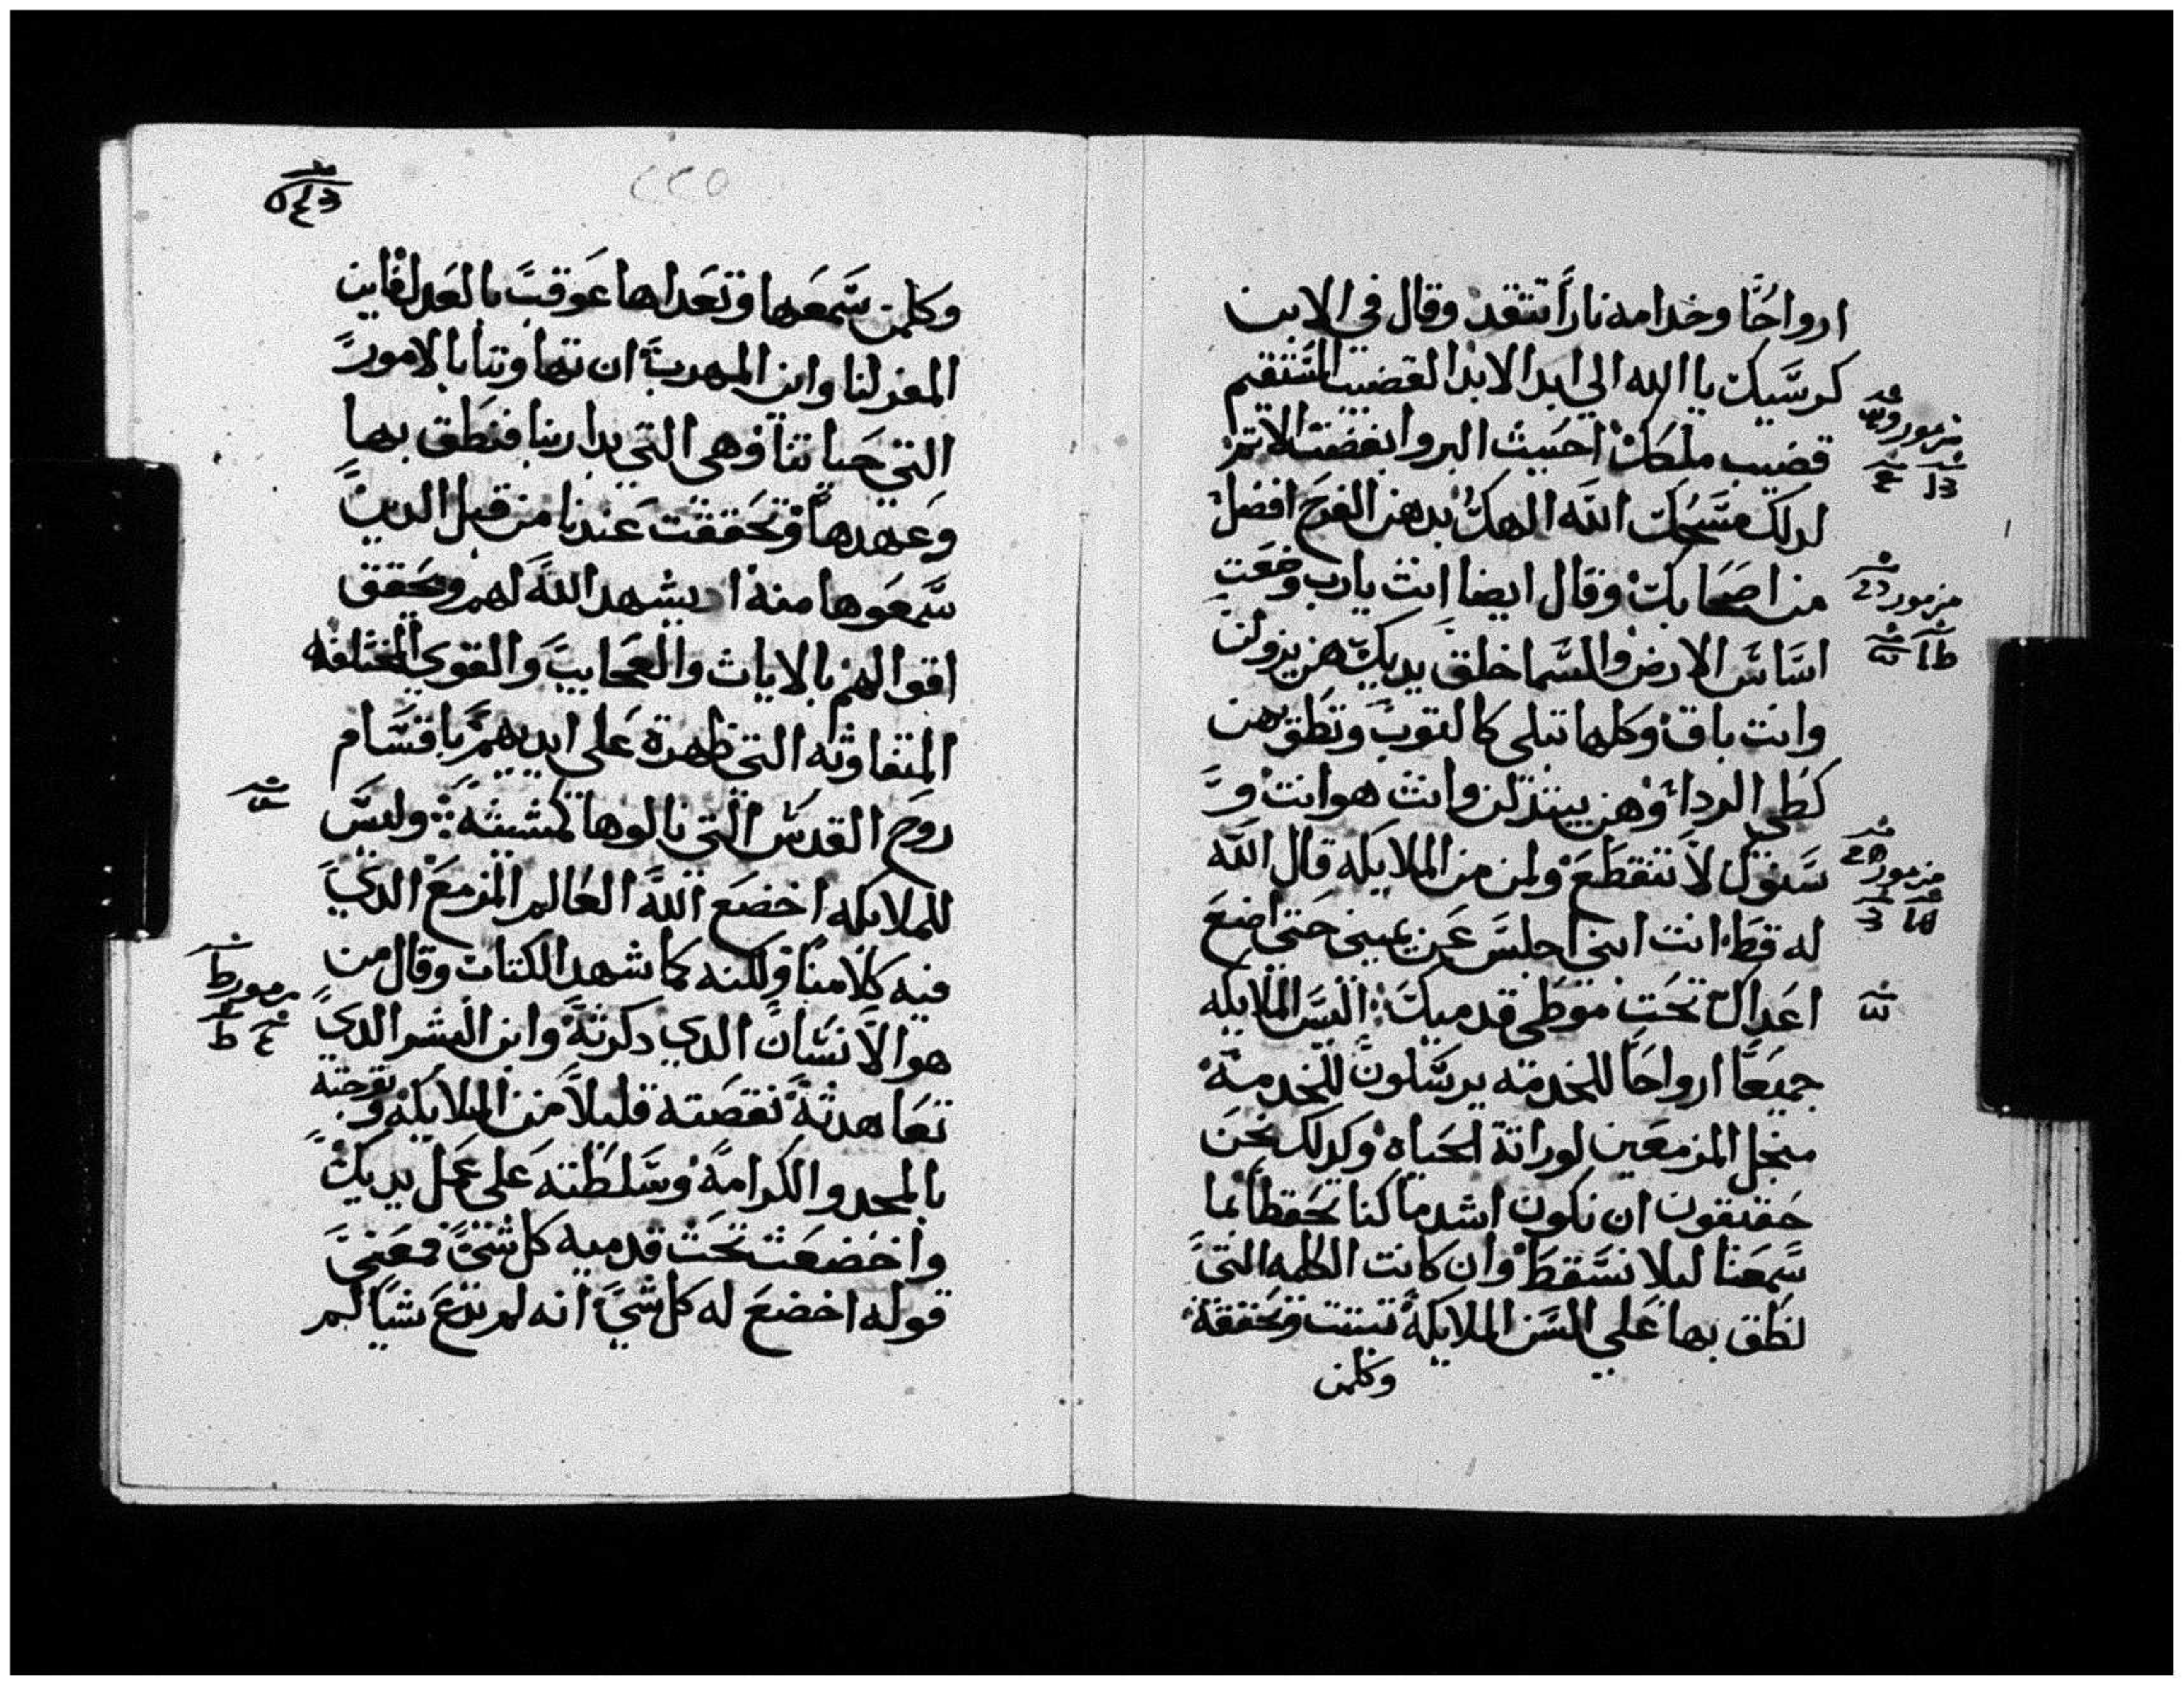 ارواحًا وخدامه نارًا تتقد وقال في الابن
كرسيك يا الله الي ابد الابد القضيب المستقيم
قضيب ملكك احببت البر وابغضت الاثم
لدلك مسحك الله الهك بدهن الفرح افضل
من اصحابك وقال ايضا انت يارب وضعت
اساس الارض والسما خلق يديك هن يزولن
وانت باق وكلها تبلي كالتوب وتطوهن
كطي الردا وهن يبتدلن وانت هو انت و
سنوك لا تنقطع ولمن من الملايكه قال الله
له قط انت ابني اجلس عن يميني حتي اضع
اعداك تحت موطي قدميك اليس الملايكه
جميعًا ارواحًا للخدمه يرسلون للخدمة
منجل المزمعين لوراتة الحياه وكدلك نحن
حقيقون ان نكون اشد ما كنا تحفظًا بما
سمعنا ليلا نسقط وان كانت الكلمه التي
نطق بها علي السن الملايكة تبتت وتحققة
وكلمن
مزمور
مزمور
مزمور
٢٢٥
وكلمن سمعها وتعداها عوقب بالعدل فاين
المفر لنا واين المهرب ان تهاوننا بالامور
التي حياتنا وهي التي بدا ربنا فنطق بها
وعهدها وتحققت عندنا من قبل الدين
سمعوها منه اد يشهد الله لهم ويحقق
اقوالهم بالايات والعجايب والقوي المختلفه
المتفاوته التي ظهرة علي ايديهم باقسام
روح القدس التي نالوها كمشيته وليس
للملايكه اخضع الله العالم المزمع الدي
فيه كلامنا ولكنه كما شهد الكتاب وقال من
هو الانسان الدي دكرته وابن البشر الدي
تعاهدته نقصته قليلاً من الملايكه وتوجته
بالمجد والكرامه وسلطته علي عمل يديك
واخضعت تحت قدميه كل شي فمعني
قوله اخضع له كل شي انه لم يدع شيا لم
مزمور ط